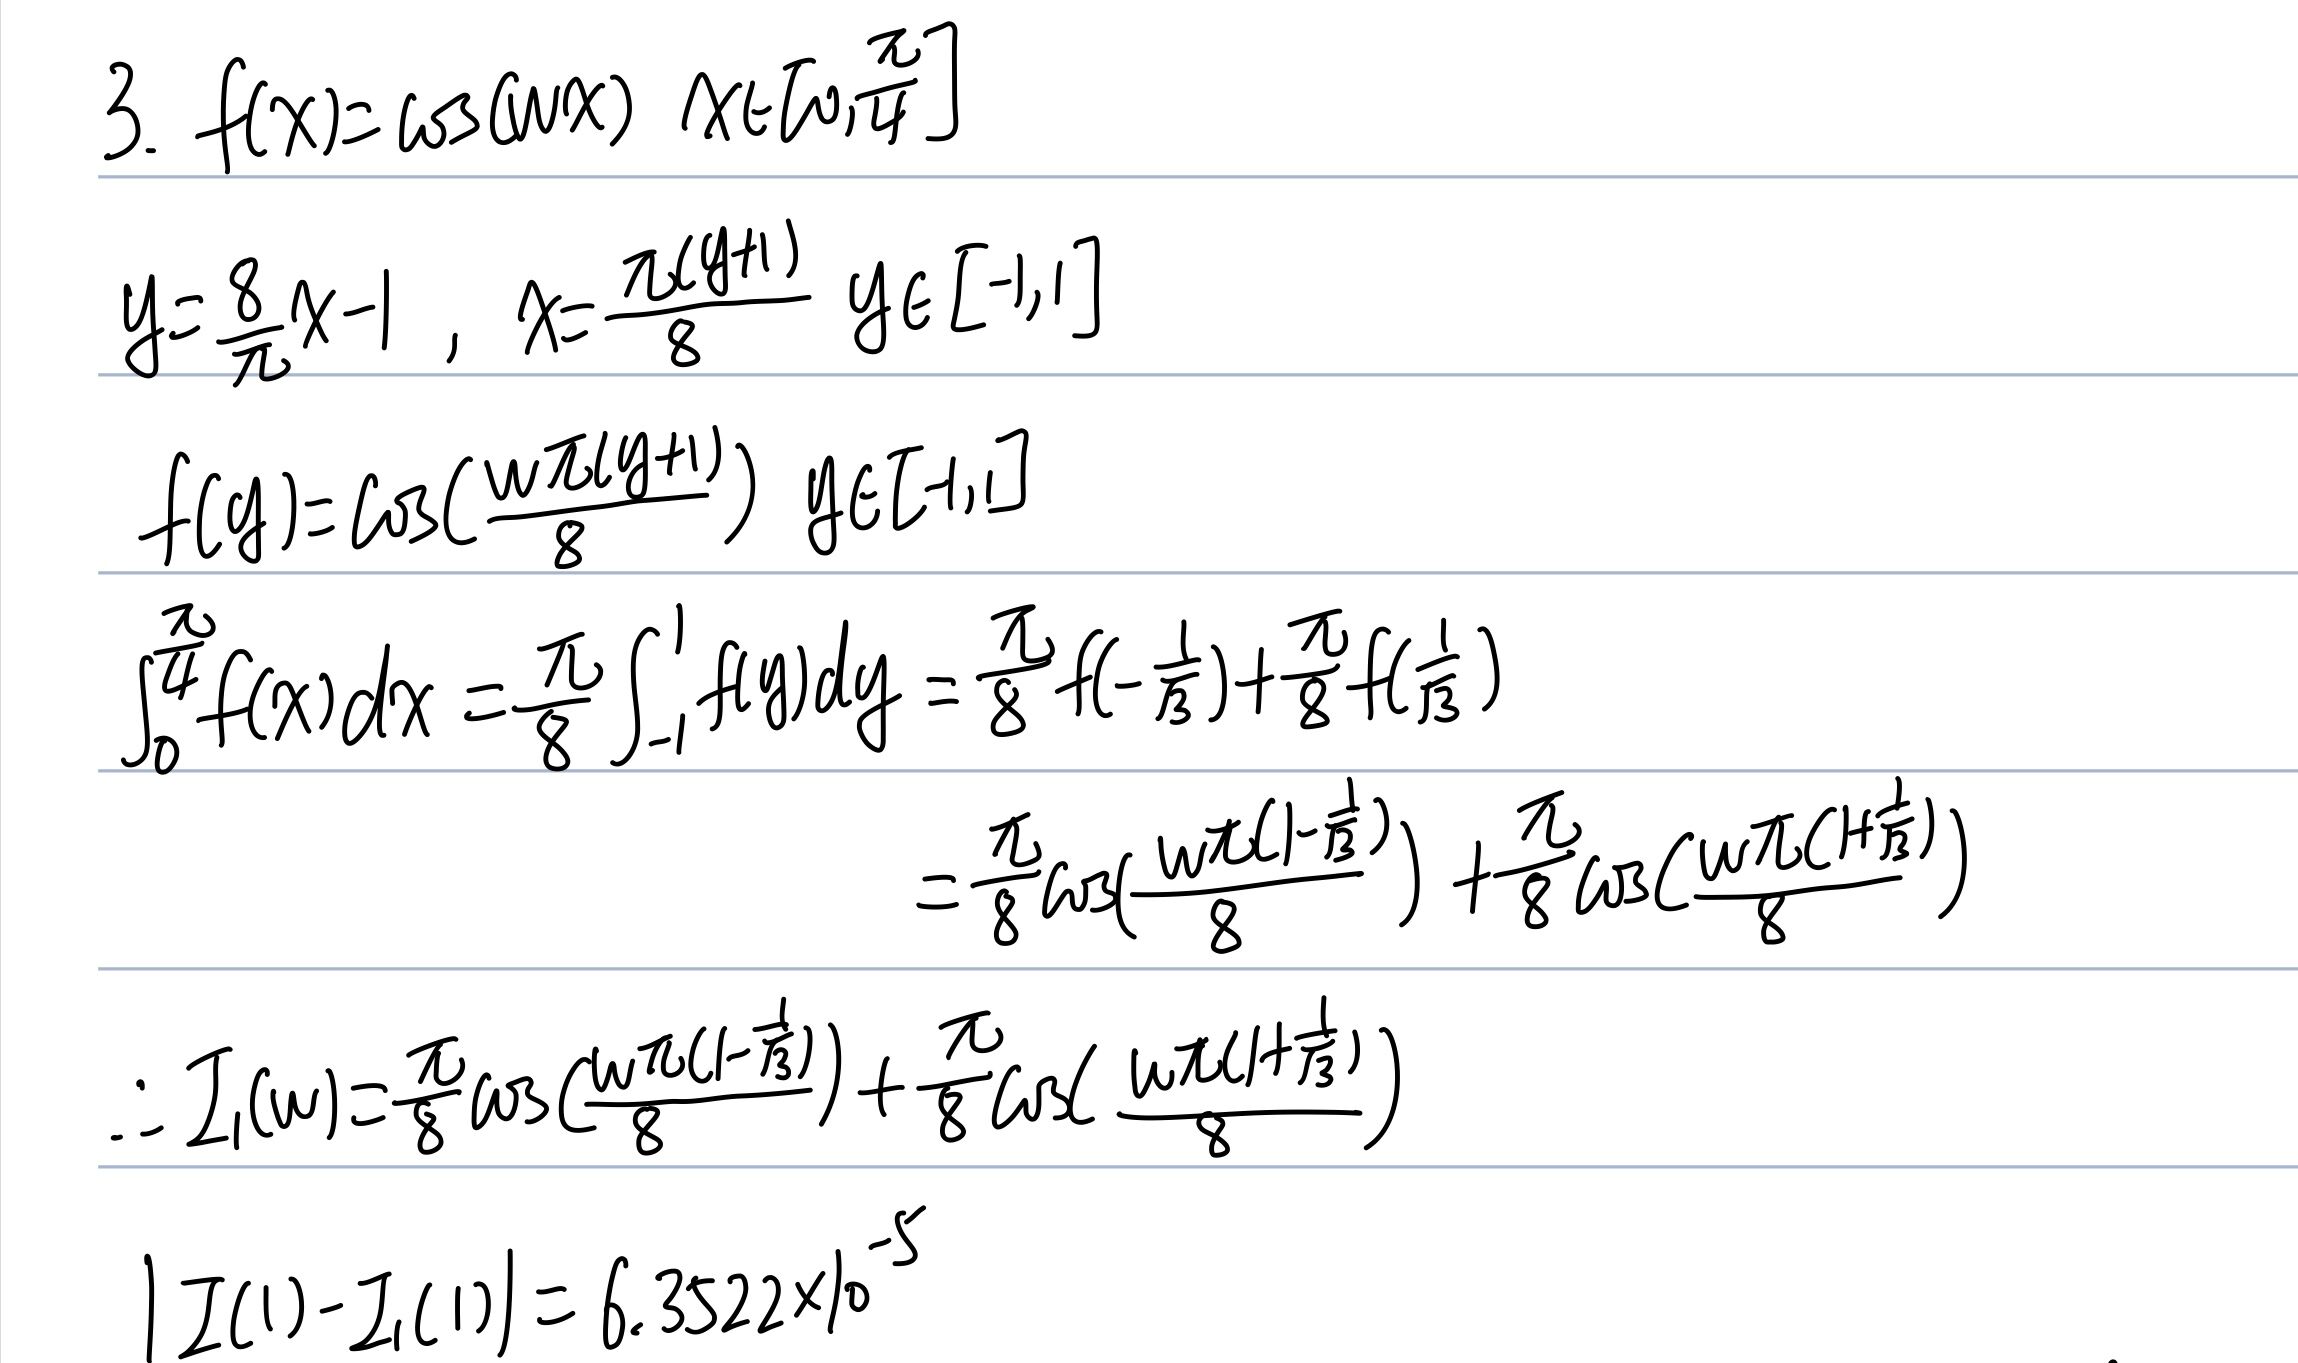 3. f(x)=cos(wx) x∈[0,π/4]
y=8/π x-1, x=π(y+1)/8 y∈[-1,1]
f(y)=cos(wπ(y+1)/8) y∈[-1,1]
∫₀^(π/4) f(x)dx = π/8 ∫₋₁¹ f(y)dy = π/8 f(-1/√3)+π/8 f(1/√3)
= π/8 cos(wπ(1-1/√3)/8) + π/8 cos(wπ(1+1/√3)/8)
∴ I₁(w)=π/8 cos(wπ(1-1/√3)/8) + π/8 cos(wπ(1+1/√3)/8)
|I(1)-I₁(1)| = 6.3522×10⁻⁵